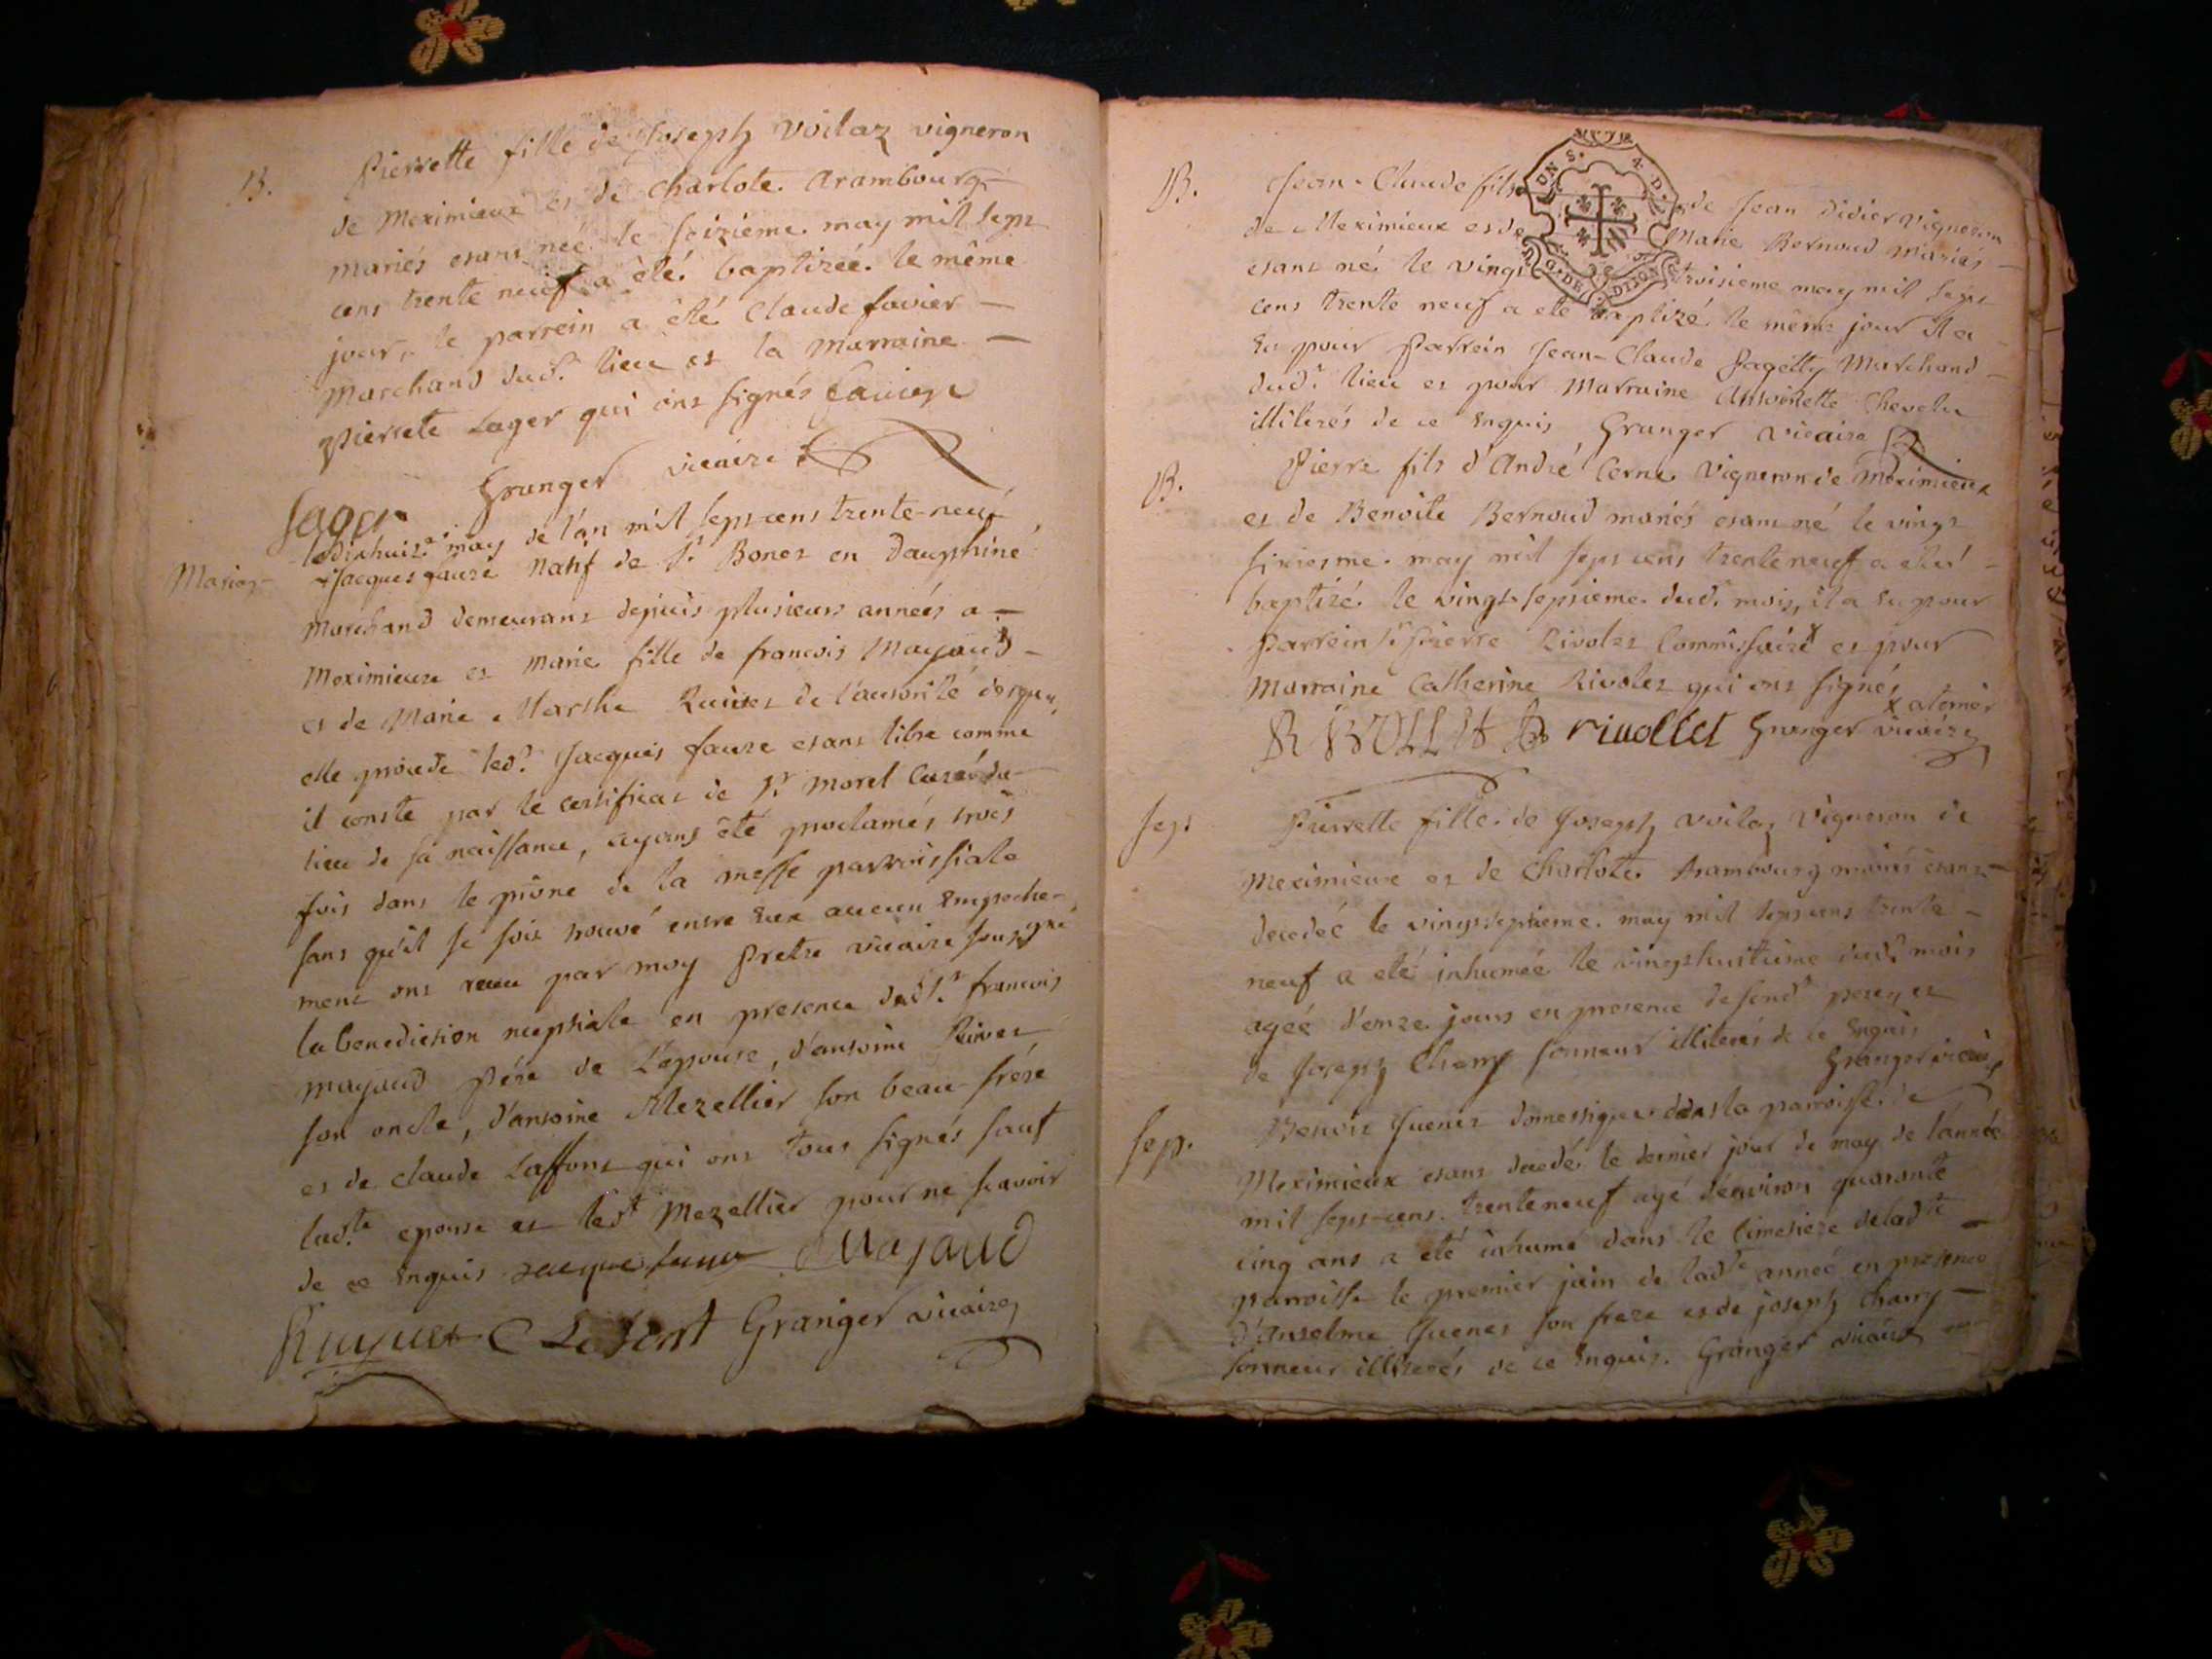 B.
Pierrette fille de Joseph Voilaz vigneron
de Meximieux et de Charlote Arambourg
mariés etant née le seizieme may mil sept
cens trente neuf a été baptizée le même
jour, le parrein a été Claude favier
Marchand dud.t lieu et la Marraine
Pierrete Lager qui ont signés favier
Granger vicaire
Lager
le dixhuit may de l'an mil sept cens trente-neuf
Mariag
Jacques faure natif de St. Bonet en Dauphiné
Marchand demeurant depuis plusieurs années a
Meximieux et Marie fille de francois Mayaud
et de Marie Marthe de l'autorité desquels
elle procede led.t Jacques faure etant libre comme
il conste par le certificat de Sr. Morel Curé du
lieu de sa naissance, ayant été proclamés trois
fois dans le prône de la messe parroissiale
sans qu'il se soit trouvé entre Eux aucun Empeche-
ment ont receu par moy Pretre vicaire soussigné
la benediction nuptiale en presence dud.t Sr. francois
Mayaud Pére de L'epouse, d'antoine
son oncle, d'antoine Mezellier son beau-frére
et de Claude Laffont qui ont tous signés sauf
lad.te epouse et led.t Mezellier pour ne scavoir
de ce Enquis Jacque faure Majaud
Granger vicaire
B.
Jean-Claude fils de Jean Didier vigneron
de Meximieux et de Marie Bernoud Mariés
etant né le vingt troisieme may mil sept
cens trente neuf a été baptizé le même jour Il a
Eu pour Parrein Jean-Claude Pagetty Marchand
dud.t lieu et pour Marraine Antoinette Chevelu
illiterés de ce Enquis Granger vicaire
B.
Pierre fils d'André Cerne Vigneron de Meximieux
et de Benoite Bernoud mariés etant né le vingt
sixiesme may mil sept cens trente neuf a été
baptizé le vingt-septieme dud.t mois, il a Eu pour
Parrein Sr. Pierre Rivolet Commissaire x et pour
Marraine Catherine Rivolet qui ont signés
x a terrier
RIVOLLET rivollet Granger vicaire
Sep.
Pierrette fille de Joseph Voilaz Vigneron de
Meximieux et de Charlote Arambourg mariés etant
decedée le vingtseptieme may mil sept cens trente
neuf a été inhumée le vingthuitieme dud.t mois
agée d'onze jours en presence de sond.t pere, et
de Joseph Charry sonneur illiterés de ce Enquis
Granger vicaire
Sep.
Benoit Juenet domestique dans la parroisse de
Meximieux etant decedé le dernier jour de may de l'année
mil sept-cens trente neuf agé d'environ quarante
cinq ans a été inhumé dans le Cimetiere de lad.te
parroisse le premier juin de lad.te année en presence
d'Anselme Juenet son frere et de joseph Charry
sonneur illiterés de ce Enquis. Granger vicaire